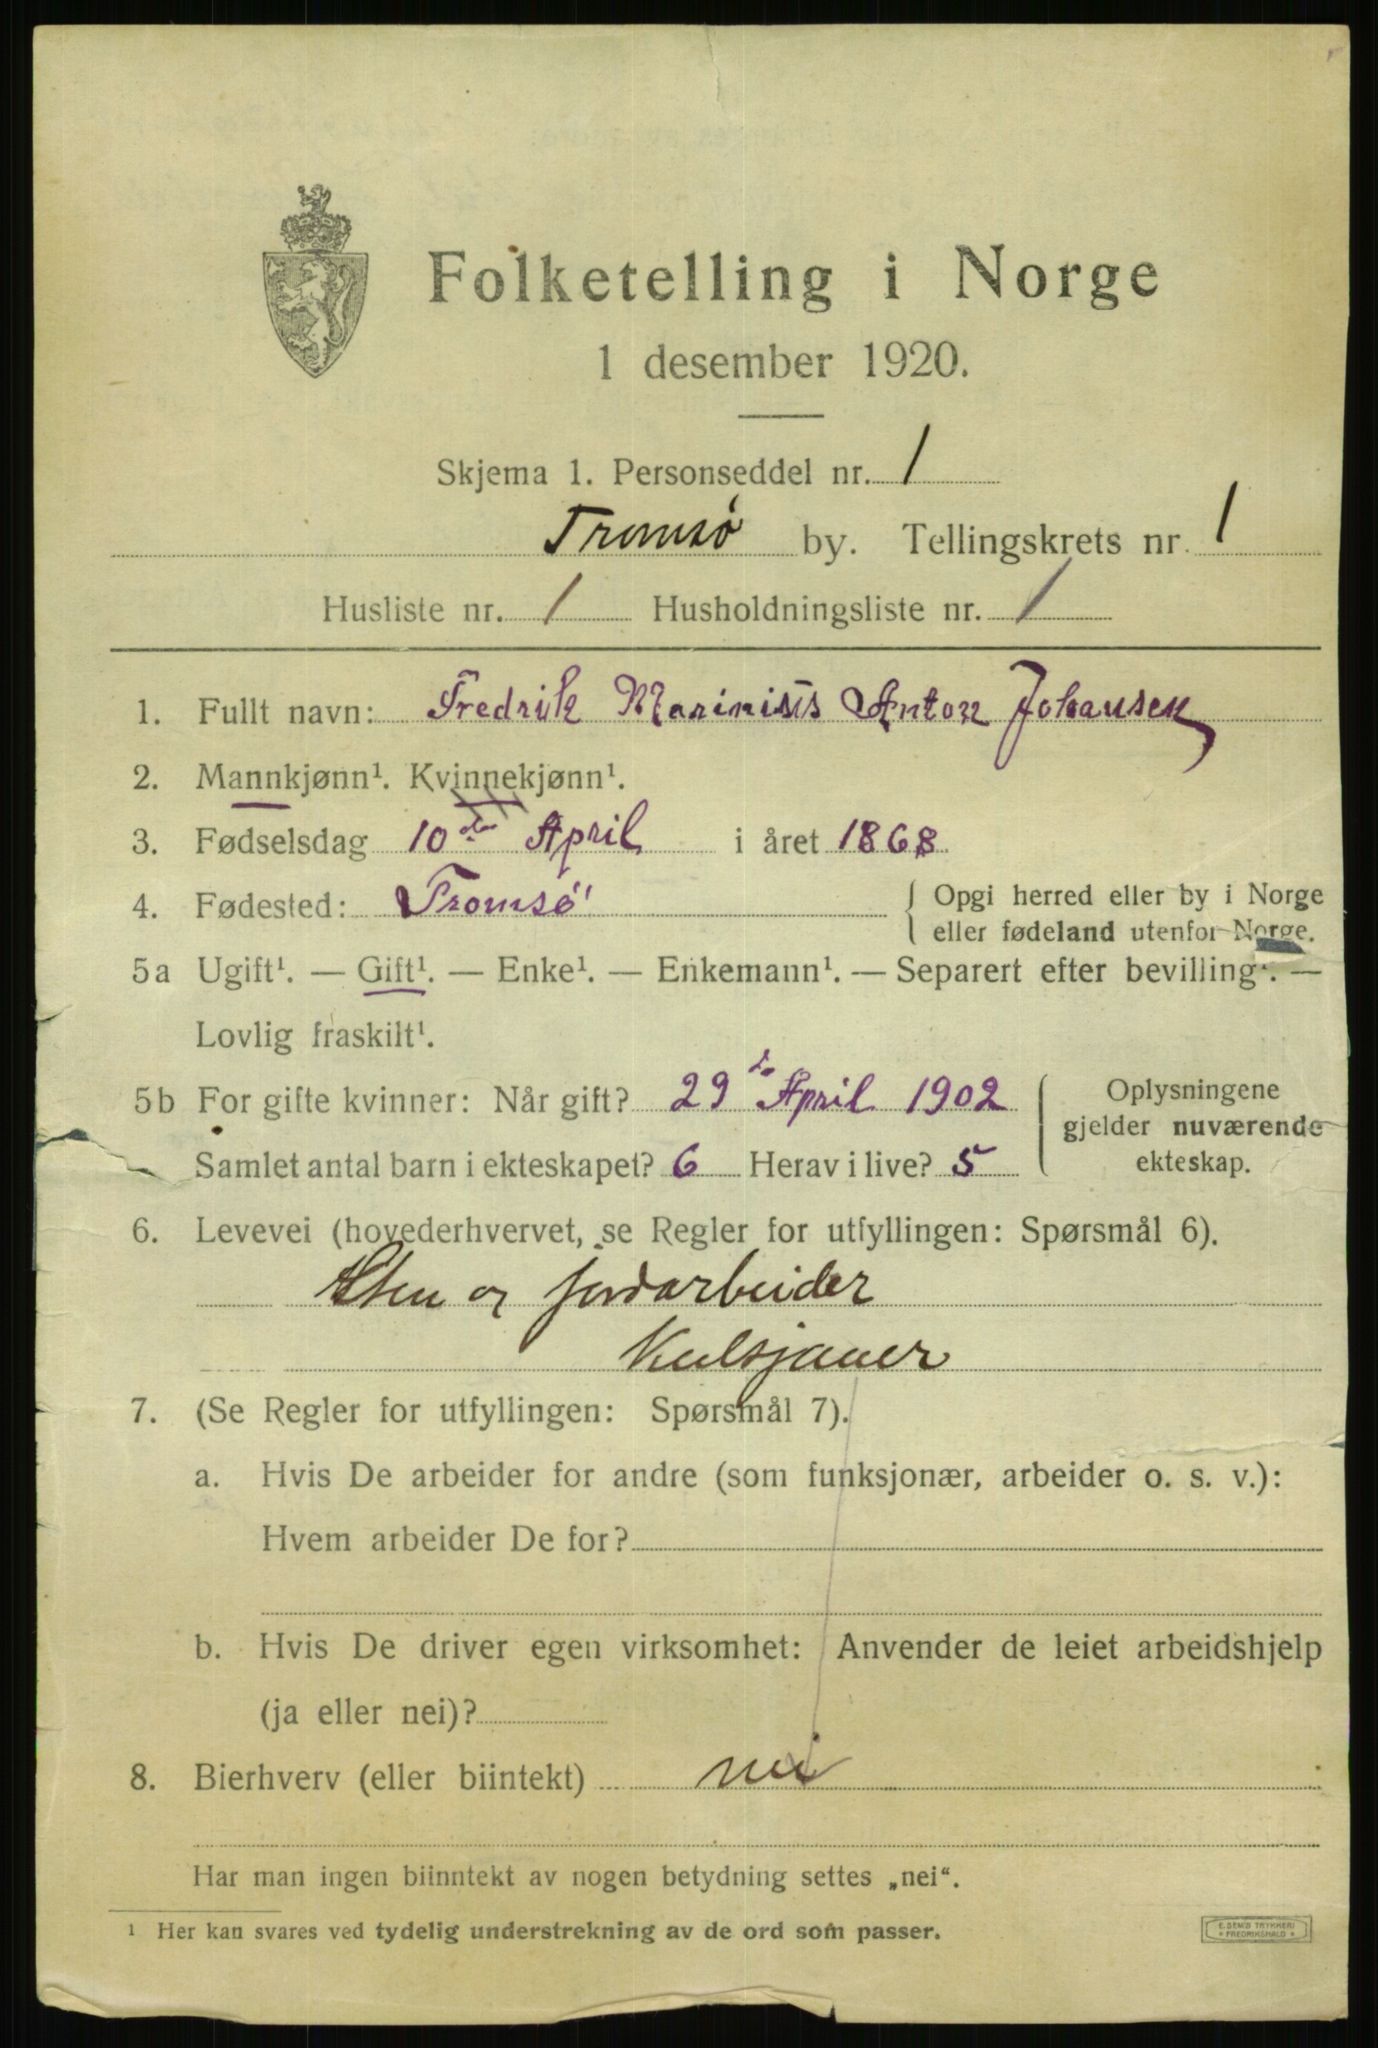 Folketelling i Norge
1 desember 1920.
Skjema 1. Personseddel nr. 1
Tromsø by. Tellingskrets nr. 1
Husliste nr. 1 Husholdningsliste nr. 1
1. Fullt navn: Fredrik Marinius Anton Johansen
2. Mannkjønn¹. Kvinnekjønn¹.
3. Fødselsdag 10de April i året 1868
4. Fødested: Tromsø { Opgi herred eller by i Norge
eller fødeland utenfor Norge.
5a Ugift¹. — Gift¹. — Enke¹. — Enkemann¹. — Separert efter bevilling¹. —
Lovlig fraskilt¹.
5b For gifte kvinner: Når gift? 29de April 1902
Samlet antal barn i ekteskapet? 6 Herav i live? 5
{ Oplysningene
gjelder nuværende
ekteskap.
6. Levevei (hovederhvervet, se Regler for utfyllingen: Spørsmål 6).
Sten og jordarbeider
Kulsjauer
7. (Se Regler for utfyllingen: Spørsmål 7).
a. Hvis De arbeider for andre (som funksjonær, arbeider o. s. v.):
Hvem arbeider De for?
b. Hvis De driver egen virksomhet: Anvender de leiet arbeidshjelp
(ja eller nei)?
8. Bierhverv (eller biintekt) nei
Har man ingen biinntekt av nogen betydning settes „nei“.
¹ Her kan svares ved tydelig understrekning av de ord som passer.
E. SEM'S TRYKKERI
* FREDRIKSHALD *